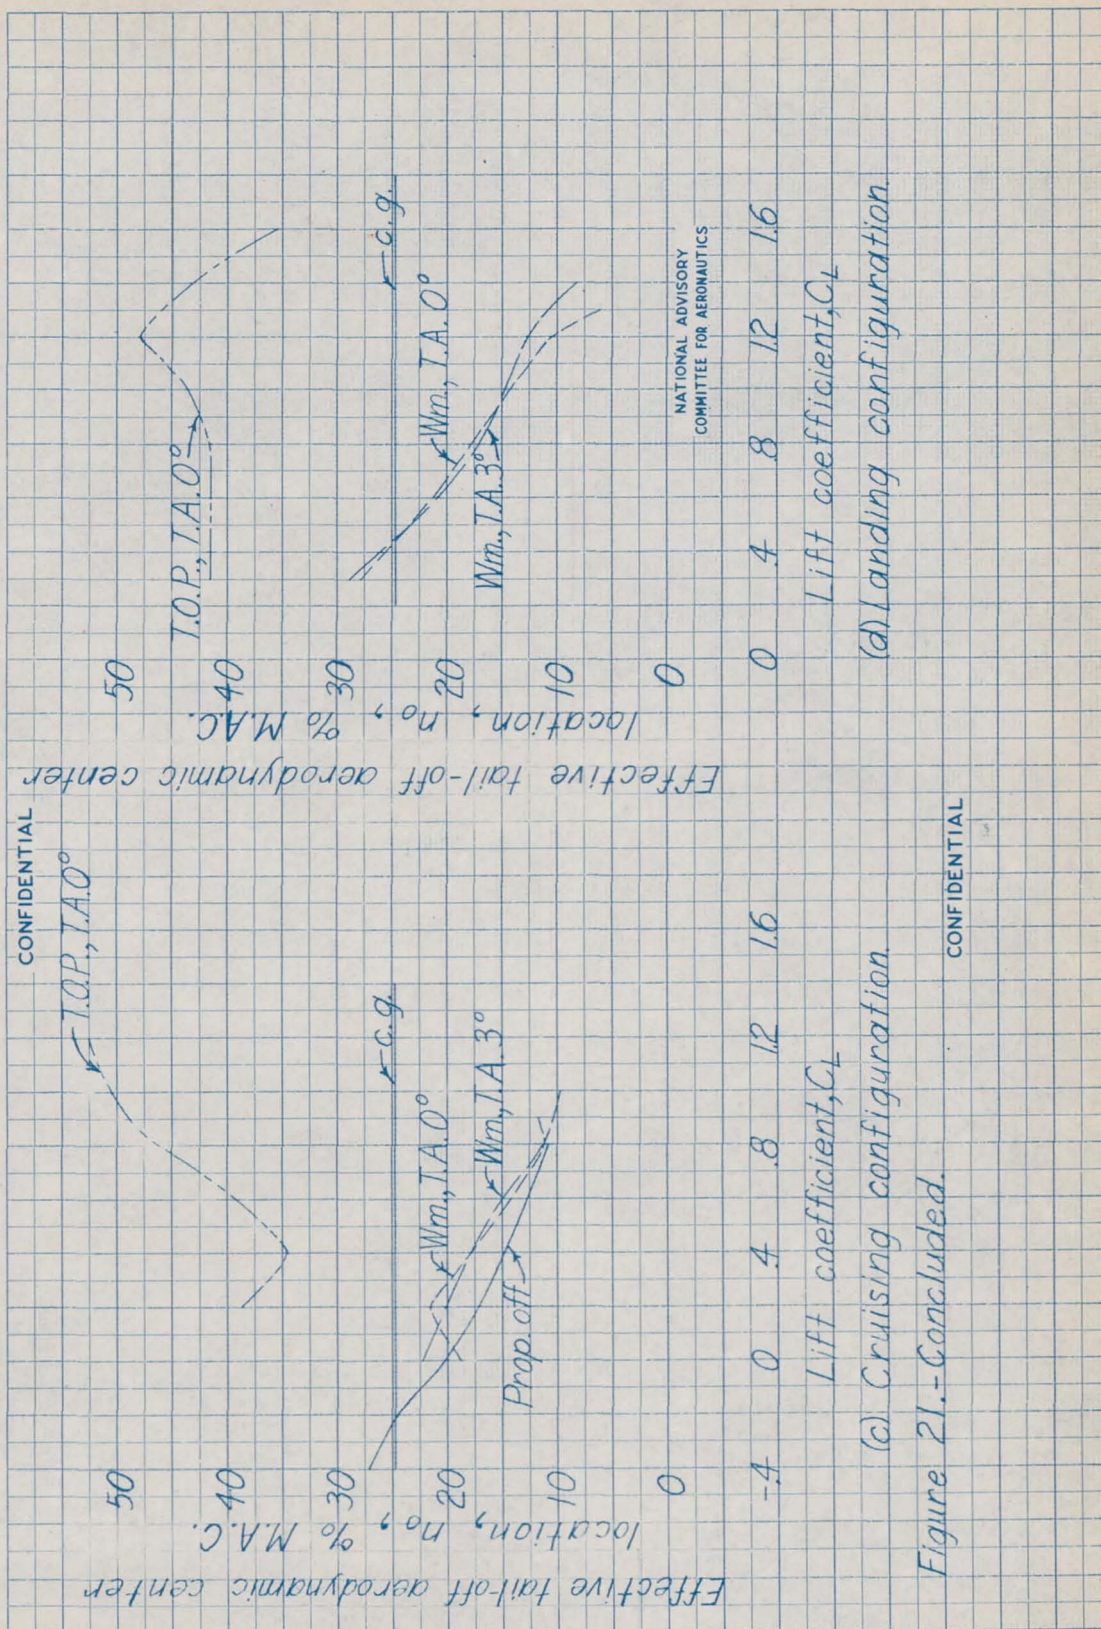 CONFIDENTIAL
Effective tail-off aerodynamic center
location, n₀, % M.A.C.
50
40
30
20
10
0
T.O.P., T.A. 0°
c.g.
Wm., T.A. 0°
Wm., T.A. 3°
Prop. off
-.4 0 .4 .8 1.2 1.6
Lift coefficient, C_L
(c) Cruising configuration.
Effective tail-off aerodynamic center
location, n₀, % M.A.C.
50
40
30
20
10
0
T.O.P., T.A. 0°
c.g.
Wm., T.A. 0°
Wm., T.A. 3°
NATIONAL ADVISORY
COMMITTEE FOR AERONAUTICS
0 .4 .8 1.2 1.6
Lift coefficient, C_L
(d) Landing configuration.
Figure 21.-Concluded.
CONFIDENTIAL